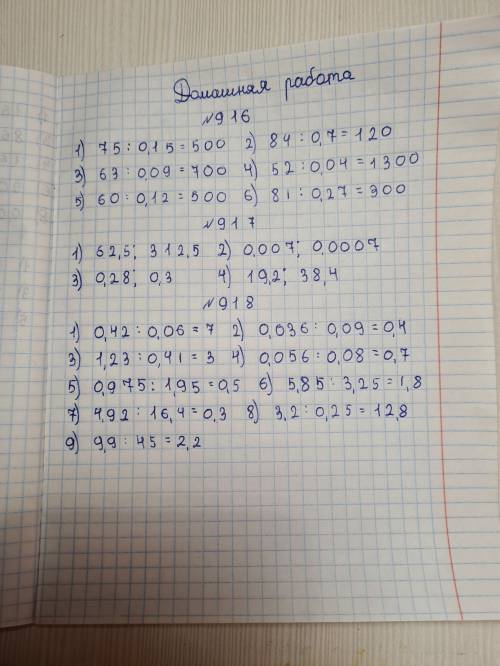 Домашняя работа
№916
1) 75 : 0,15 = 500 2) 84 : 0,7 = 120
3) 63 : 0,09 = 700 4) 52 : 0,04 = 1300
5) 60 : 0,12 = 500 6) 81 : 0,27 = 300
№917
1) 62,5; 312,5 2) 0,007; 0,0007
3) 0,28; 0,3 4) 19,2; 38,4
№918
1) 0,42 : 0,06 = 7 2) 0,036 : 0,09 = 0,4
3) 1,23 : 0,41 = 3 4) 0,056 : 0,08 = 0,7
5) 0,975 : 1,95 = 0,5 6) 5,85 : 3,25 = 1,8
7) 4,92 : 16,4 = 0,3 8) 3,2 : 0,25 = 12,8
9) 9,9 : 45 = 2,2